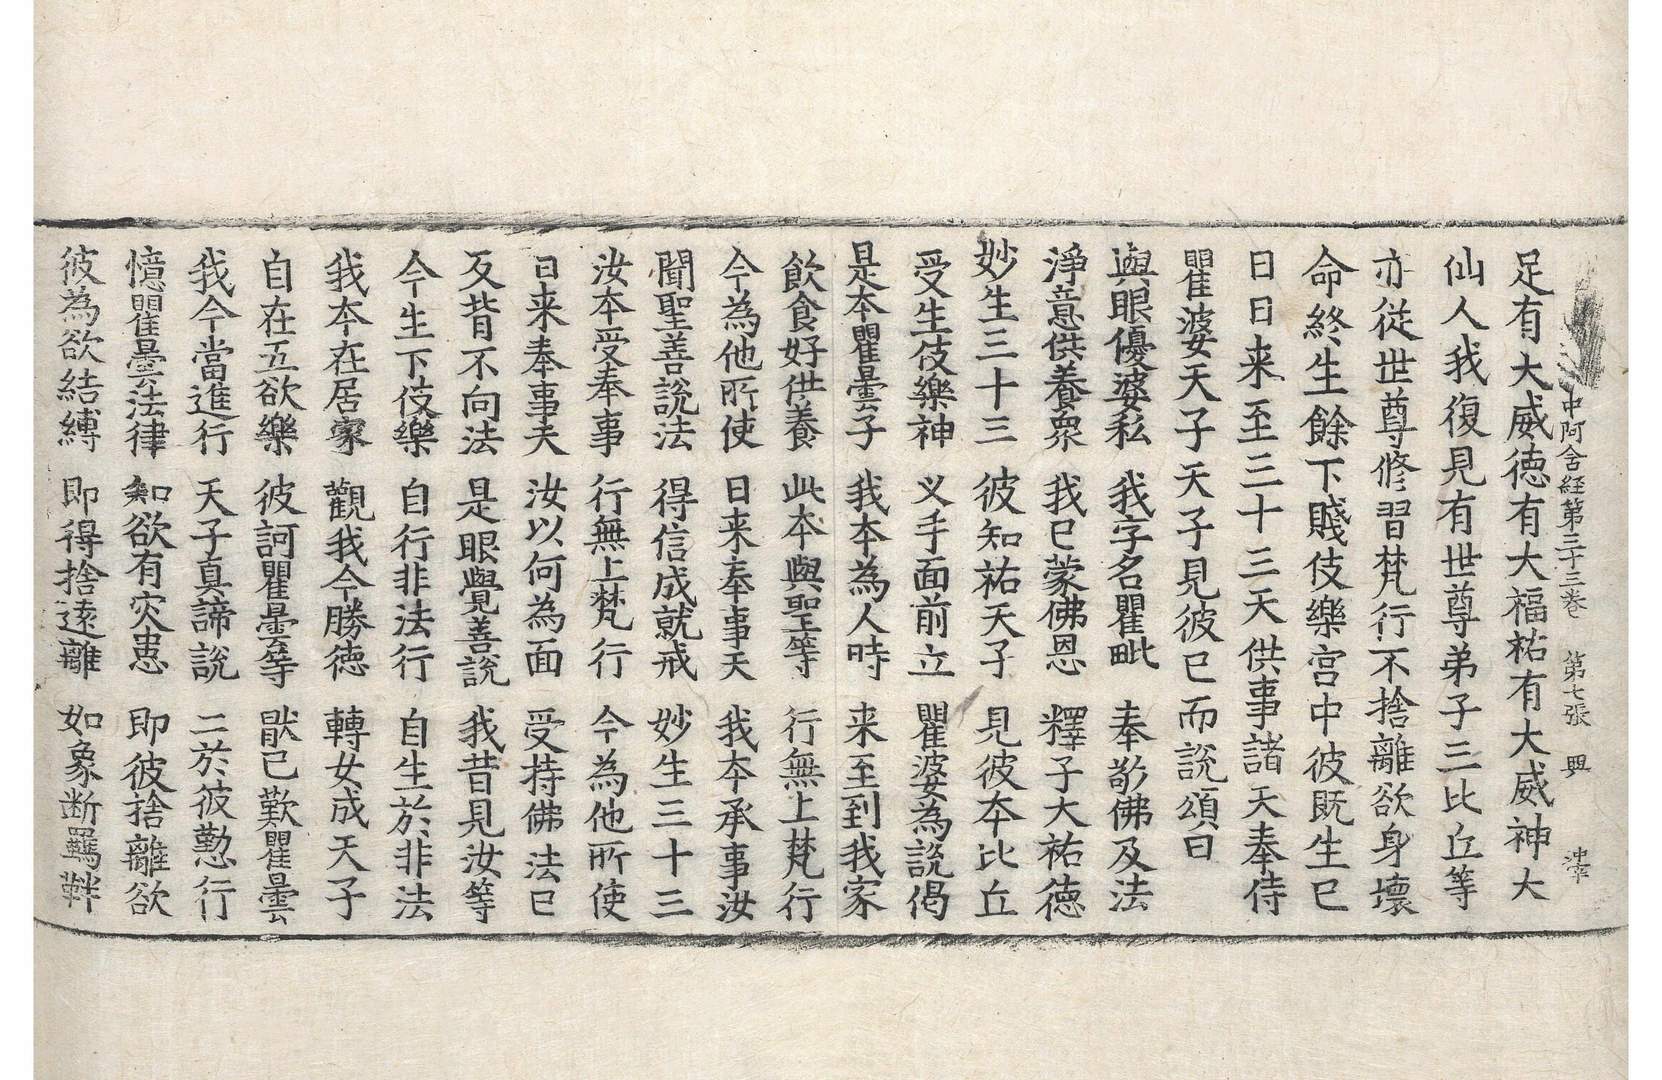 中阿含経第三十三巻 第七張 興
足有大威徳有大福祐有大威神大
仙人我復見有世尊弟子三比丘等
亦從世尊修習梵行不捨離欲身壞
命終生餘下賤伎樂宮中彼既生已
日日来至三十三天供事諸天奉侍
瞿婆天子天子見彼已而説頌曰
與眼優婆私 我字名瞿毗 奉敬佛及法
淨意供養衆 我已蒙佛恩 釋子大祐徳
妙生三十三 彼知祐天子 見彼本比丘
受生伎樂神 叉手面前立 瞿婆為說偈
是本瞿曇子 我本為人時 来至到我家
飲食好供養 此本與聖等 行無上梵行
今為他所使 日来奉事天 我本承事汝
聞聖善說法 得信成就戒 妙生三十三
汝本受奉事 行無上梵行 今為他所使
日来奉事天 汝以何為面 受持佛法已
反背不向法 是眼覺善說 我昔見汝等
今生下伎樂 自行非法行 自生於非法
我本在居家 觀我今勝徳 轉女成天子
自在五欲樂 彼訶瞿曇等 猒已歎瞿曇
我今當進行 天子真諦說 二於彼懃行
憶瞿曇法律 知欲有灾患 即彼捨離欲
彼為欲結縛 即得捨遠離 如象断羈靽